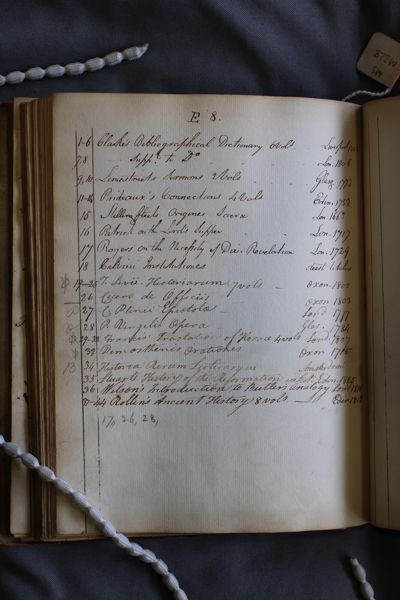 E. 8.
1-6 Clarke's Bibliographical Dictionary 6 Vols.
7.8 Suppt. to Do. Lon. 1806
9,10 Sermons 2 Vols Glasg. 177
11-14 Prideaux's Connections 4 Vols Edin. 1752
15 Stillingfleets Origines Sacrae Lon 1663
16 Patrick on the Lord's Supper Lon. 1717
17 Rogers on the Necessity of Div. Revelation Lon. 1729
18 Calvini Institutiones
19-25 T. Livii Historiarum 7 vols Oxon. 1800
26 Cicero de Officiis Oxon 1803
27 C. Plinii Epistolæ Lond 1777
28 P. Virgilii Opera Glas. 1784
29-32 Francis Translation of Horace 4 vols Lond. 1807
33 Demosthenis Orationes Oxon
34 Historia Rerum Amsterdam
35 Stuarts History of the Reformation Edin. 1805
36 Wilson's Introduction to Butler's Analogy Lond
37-44 Rollin's Ancient History 8 vols Edin
17, 26, 28,